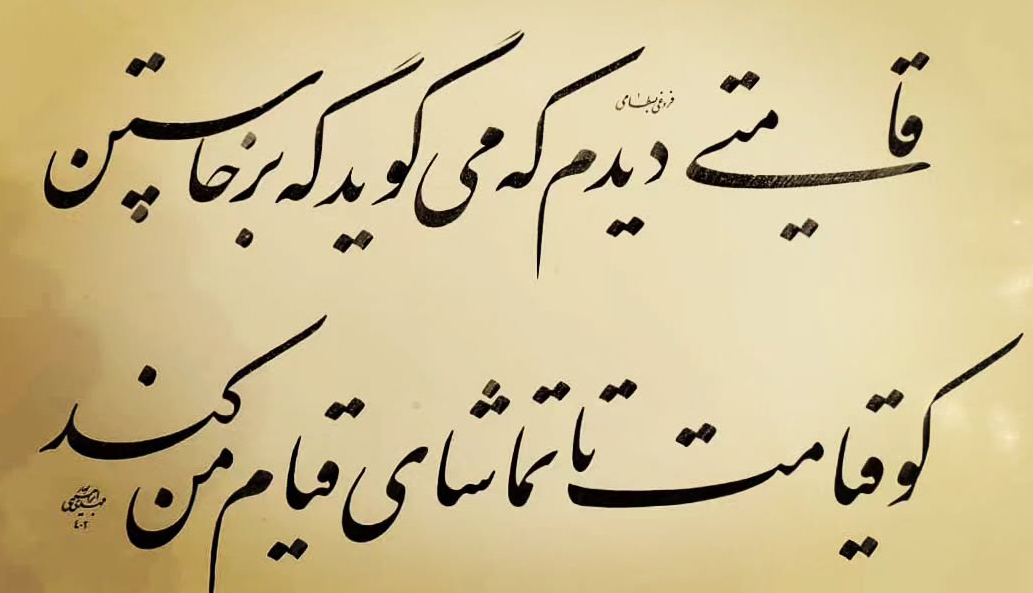 قامتے دیدم که می گوید که برخاستن
فروغی بسطامی
کو قیامت تا تماشای قیام من کند
۴۰۲